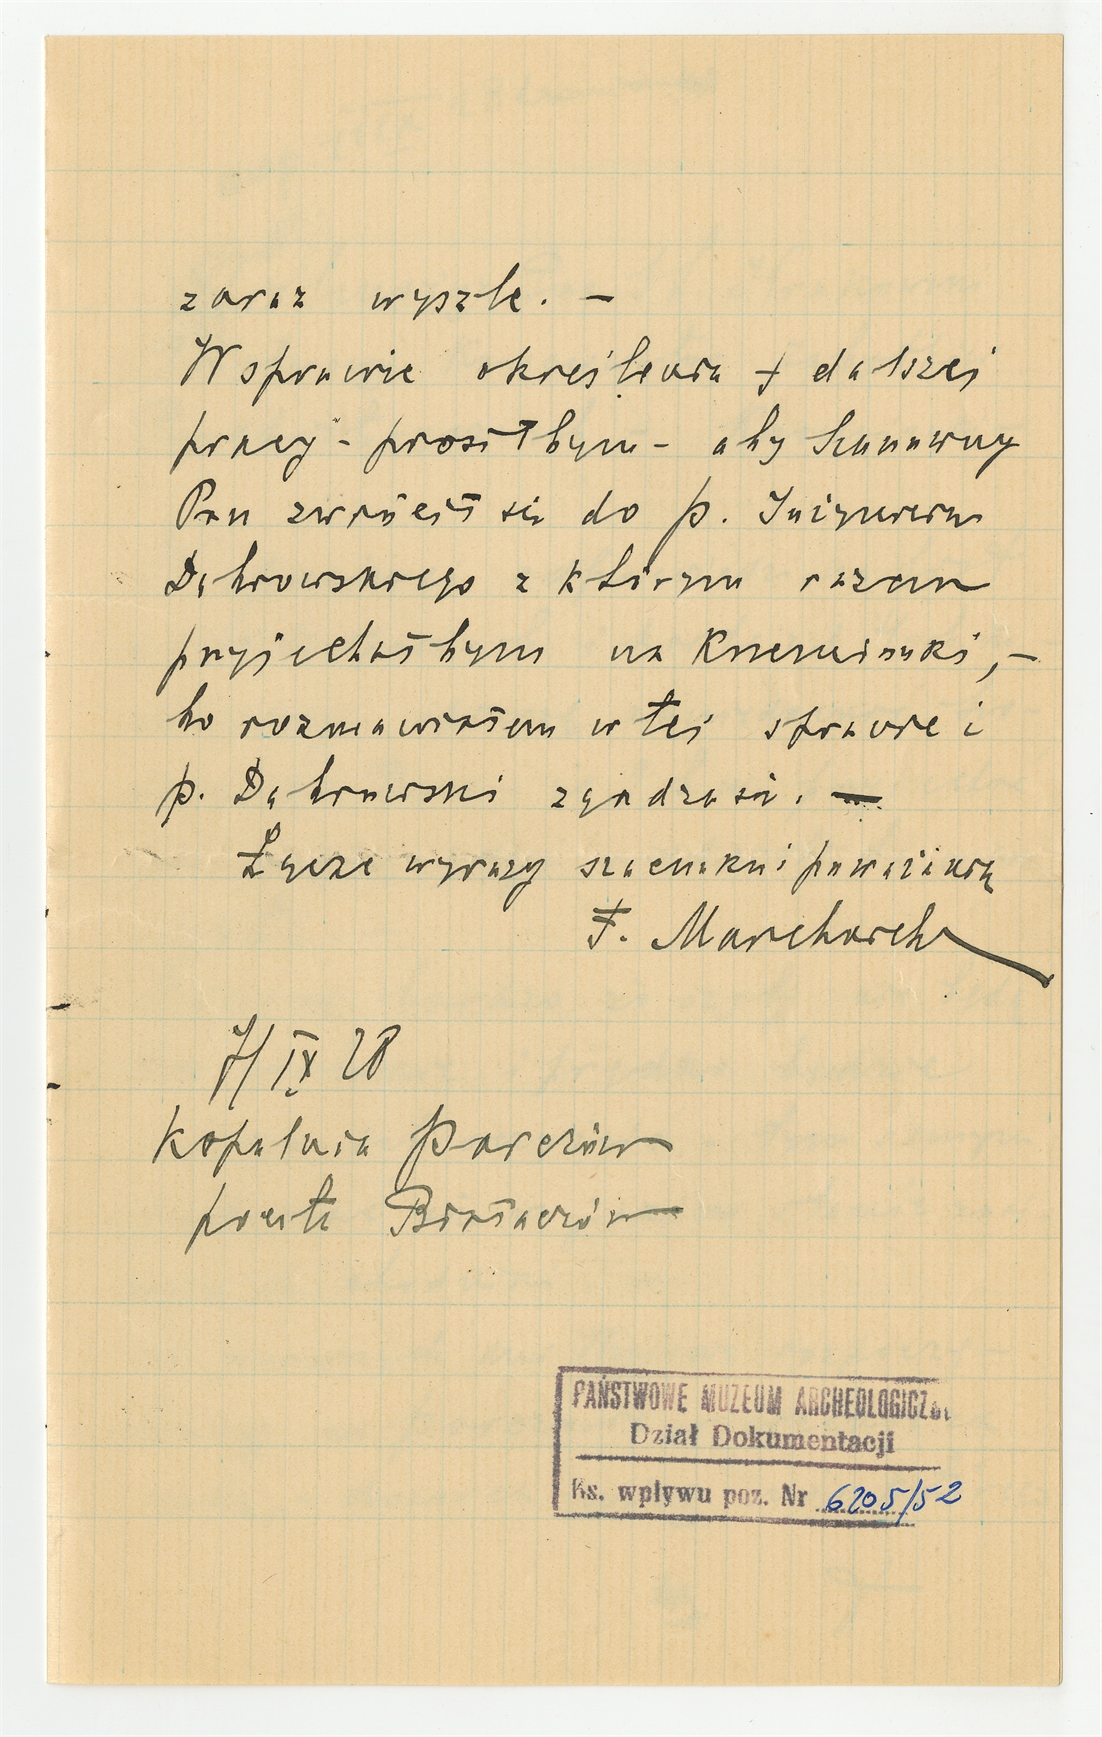 zaraz wyszle. —
W sprawie określenia i dalszej
pracy - prosiłbym - aby Szanowny
Pan zwrócił się do p. Inżyniera
Dąbrowskiego z którym razem
przyjechałbym na Krzemionki, —
bo rozmawiałem w tej sprawie i
p. Dąbrowski zgadza się. —
Łącze wyrazy szacunku i poważania
F. Marchacki
7/IX 28
Kopalnia Parczów
poczta Białaczów
PAŃSTWOWE MUZEUM ARCHEOLOGICZNE
Dział Dokumentacji
Ks. wpływu poz. Nr 6205/52